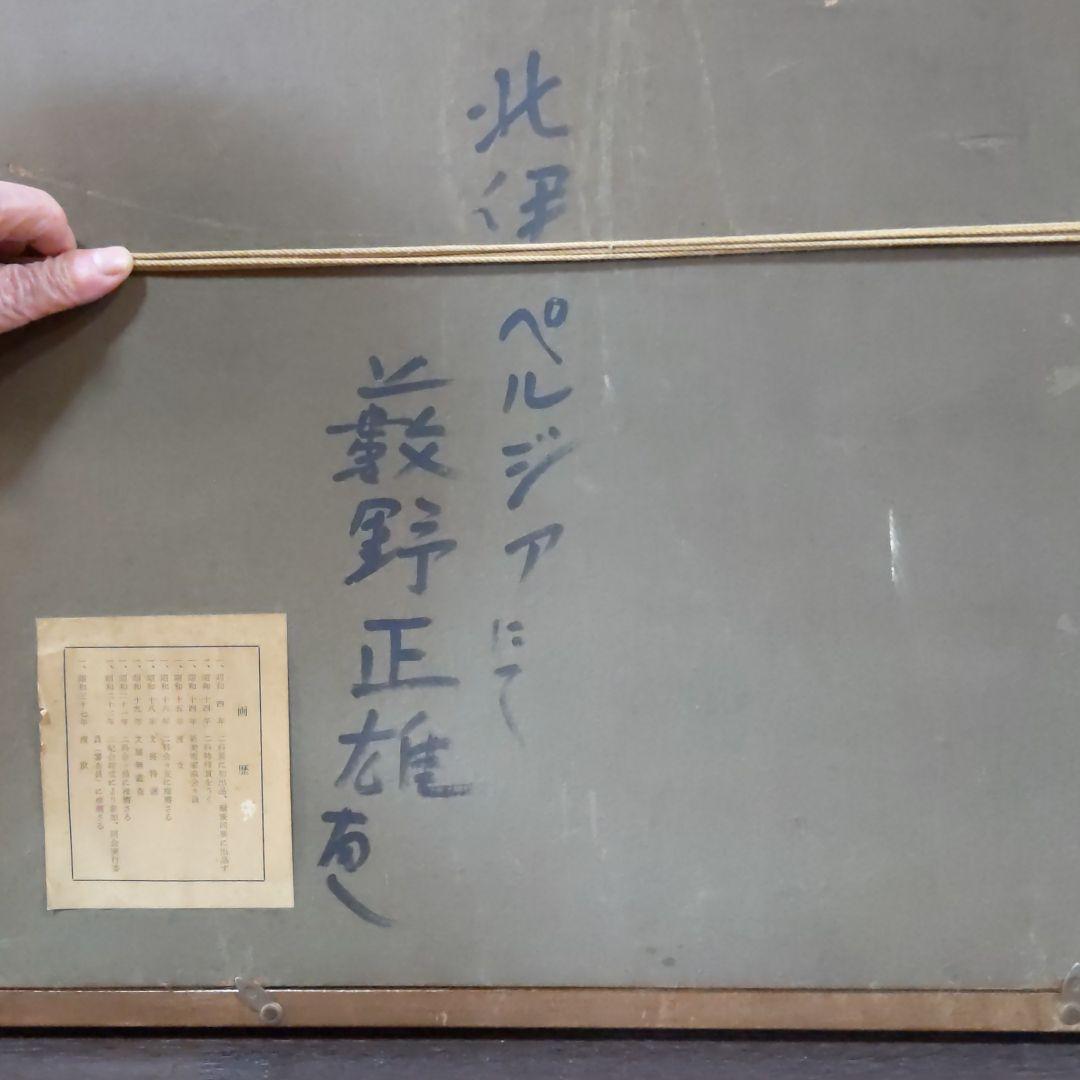 北伊
ペルジアにて
藪野正雄
画歴
一、昭和四年 二科展に初出品、爾後同展に出品す
一、昭和十四年
一、昭和十四年
一、昭和十五年 渡支
一、昭和十六年 二科会々友に推薦さる
一、昭和十八年 文展特選
一、昭和十九年 文展無鑑査
一、昭和二十一年 二科会々員に推薦さる
一、昭和二十二年
員(審査員)に推薦さる
一、昭和三十七年 渡欧